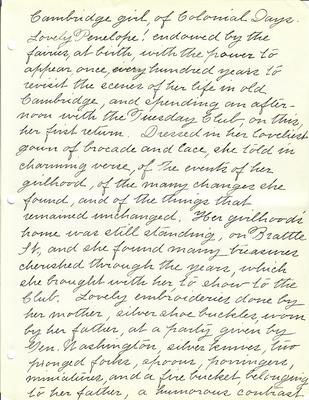 Cambridge girl, of Colonial Days.
Lovely Penelope! endowed by the
fairies, at birth, with the power to
appear once, every hundred years to
revisit the scenes of her life in old
Cambridge, and spending an after-
noon with the Tuesday Club, on this,
her first return. Dressed in her loveliest
gown of brocade and lace, she told in
charming verse, of the events of her
girlhood, of the many changes she
found, and of the things that
remained unchanged. Her girlhood's
home was still standing, on Brattle
St, and she found many treasures
cherished through the years, which
she brought with her to show to the
Club. Lovely embroideries done by
her mother, silver shoe buckles, worn
by her father, at a party given by
Gen. Washington, silver knives, two
pronged forks, spoons, porringers,
miniatures, and a fire bucket belonging
to her father, a humorous contrast